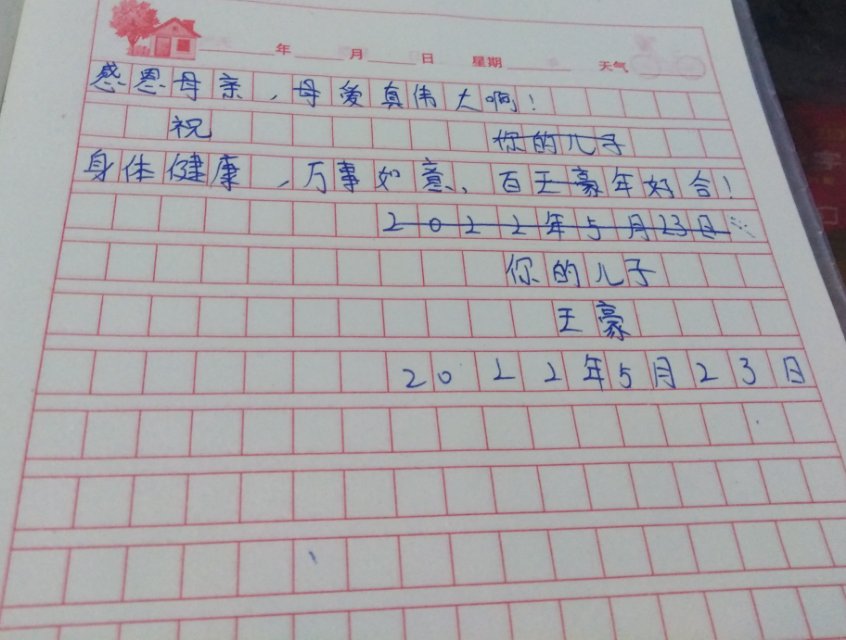 年 月 日 星期 天气
感恩母亲，母爱真伟大啊！
祝 你的儿子
身体健康，万事如意、百王豪年好合！
2022年5月23日
你的儿子
王豪
2022年5月23日